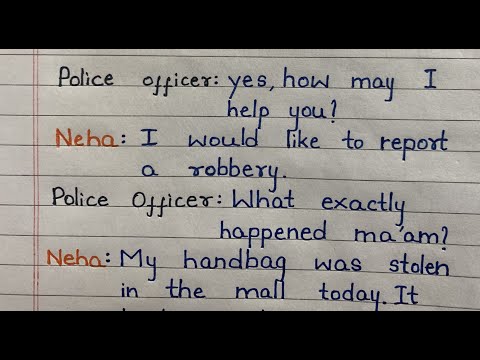 Police officer: yes, how may I
help you?
Neha: I would like to report
a robbery.
Police Officer: What exactly
happened ma'am?
Neha: My handbag was stolen
in the mall today. It